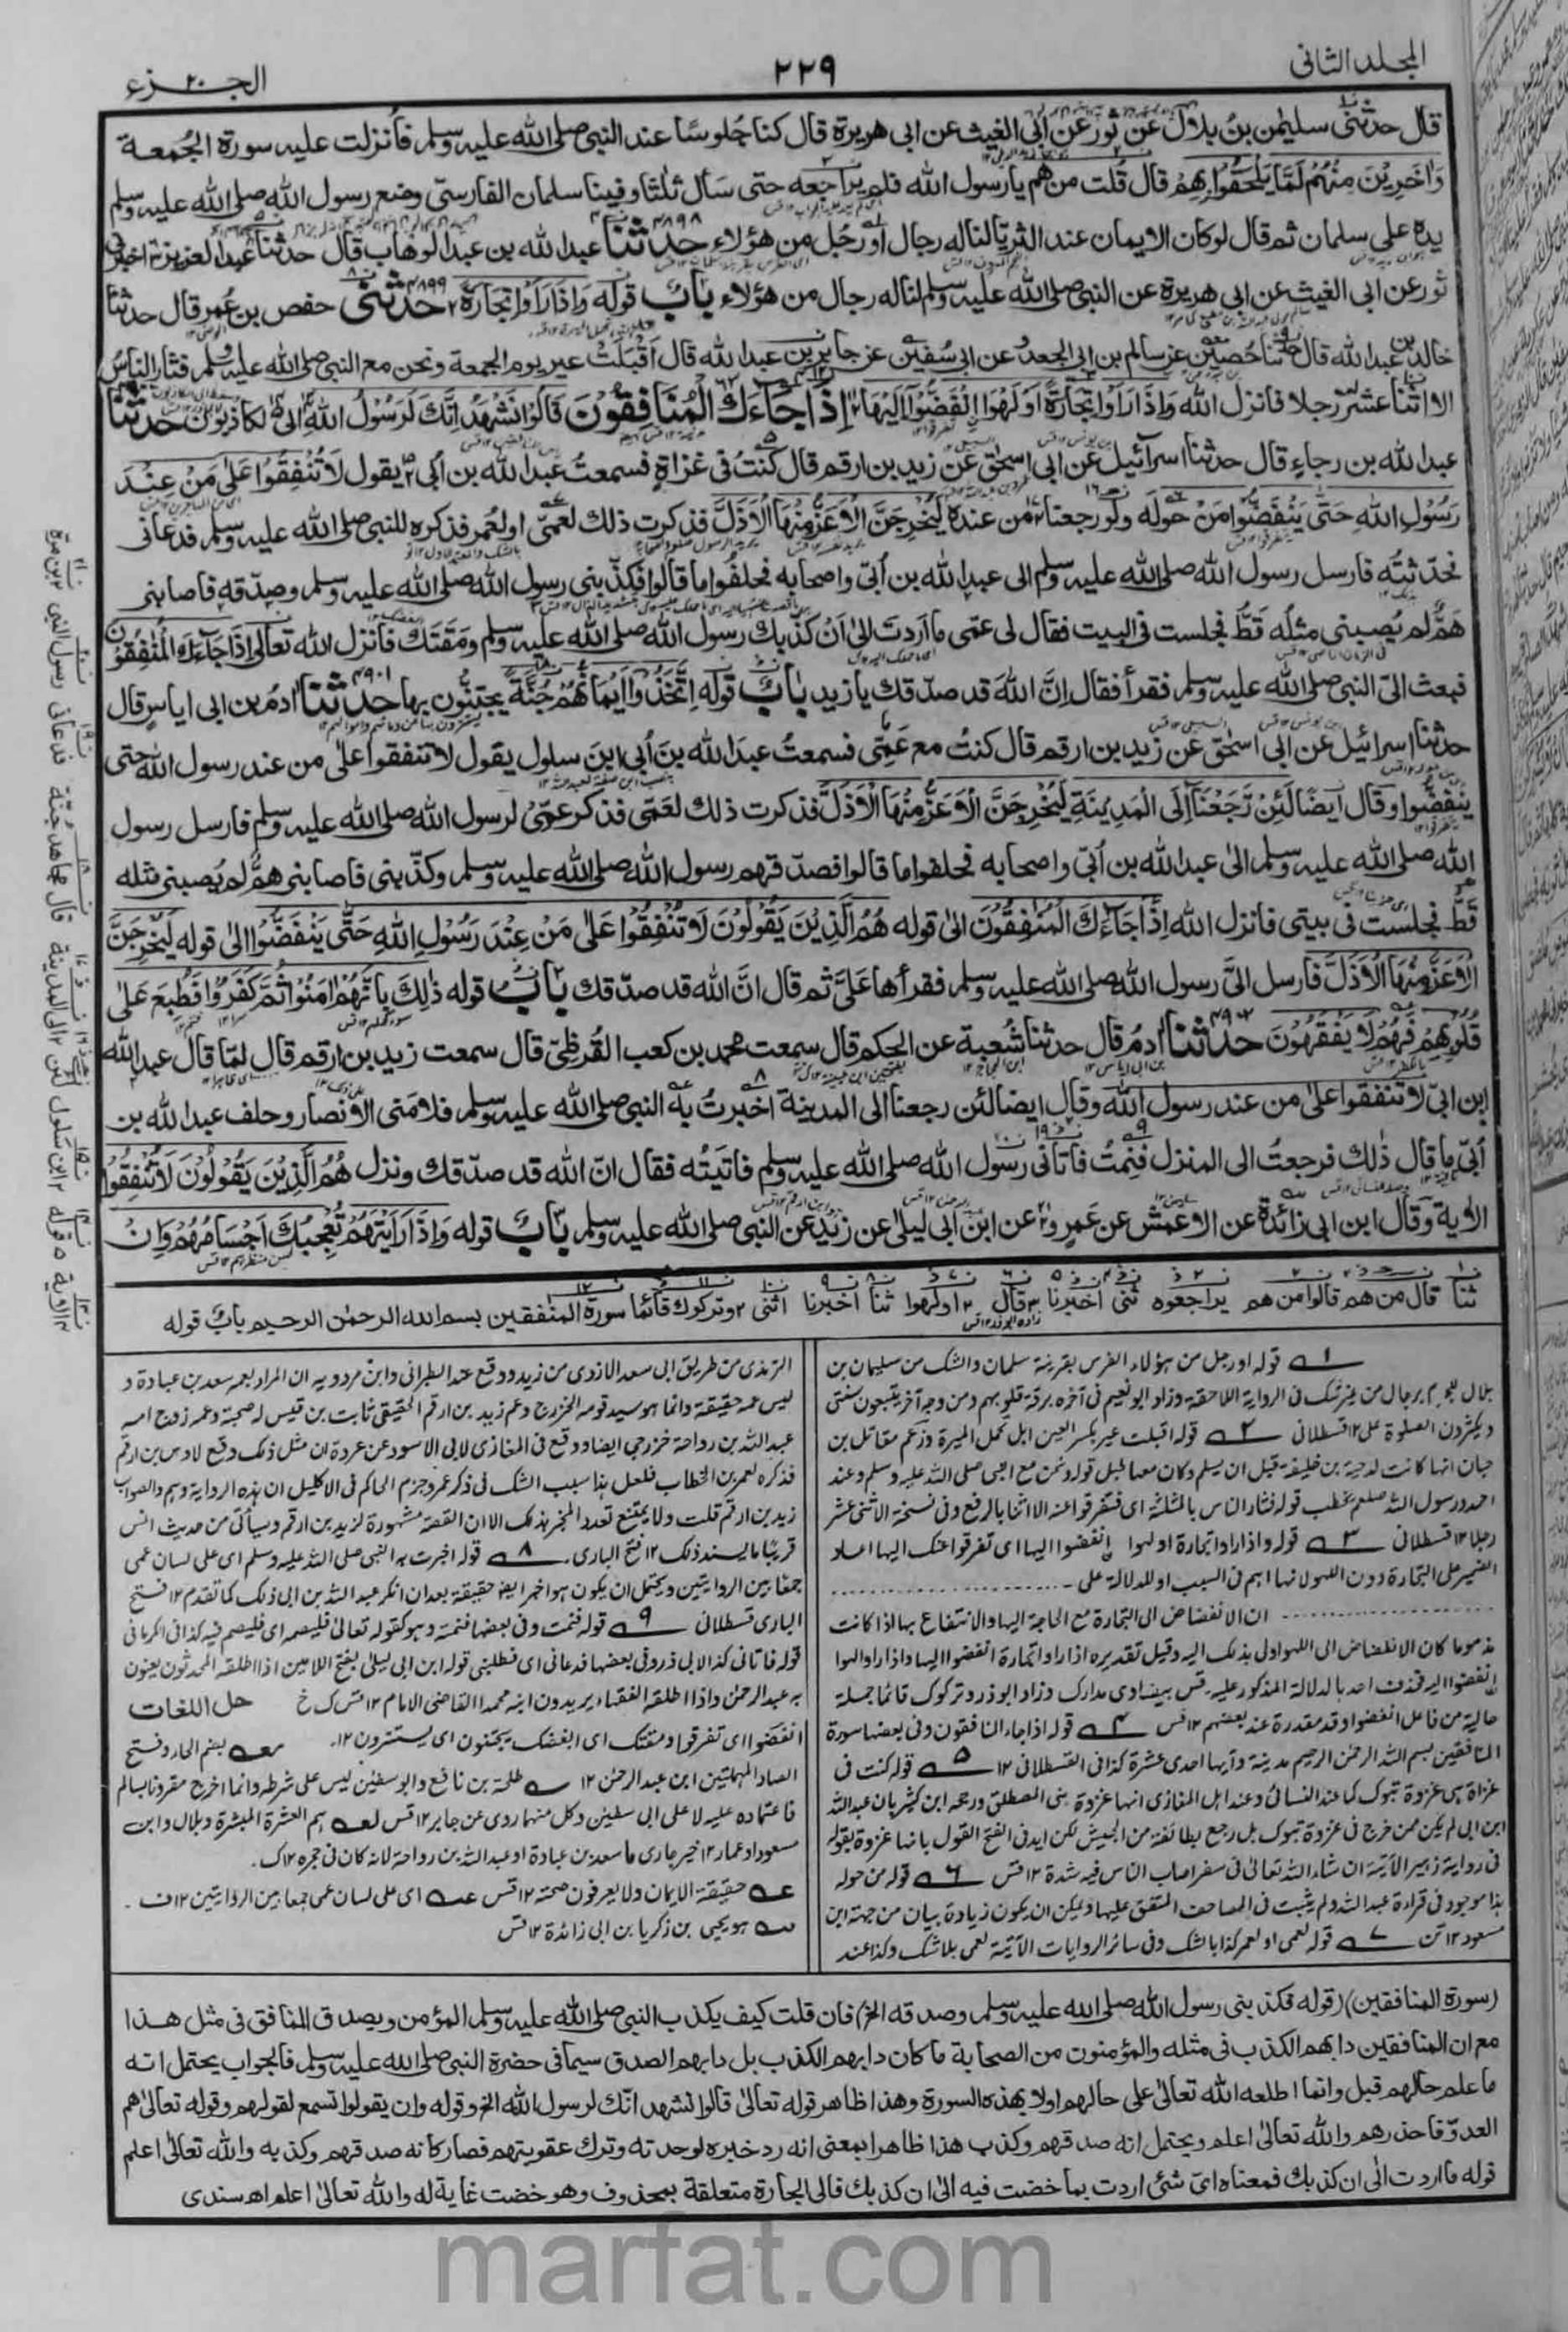 المجلد الثانی
٢٢٩
الجزء ٢٠
قال حدثنی سلیمٰن بنُ بلال عن ثور عن ابی الغیث عن ابی هریرة قال کنا جُلوسًا عند النبی صلی الله علیه وسلم فأنزلت علیه سورة الجُمعة
وَاٰخَرِیْنَ مِنْهُمْ لَمَّا یَلْحَقُوْا بِهِمْ قال قُلت من هم یا رسول الله فلم یراجعه حتی سأل ثلٰثا وفینا سلمان الفارسیّ وضع رسول الله صلی الله علیه وسلم
یده علی سلمان ثم قال لوکان الایمان عند الثریّا لناله رجال او رجُل من هؤلاء حدثنا ٤٨٩٨ عبدالله بن عبدالوهاب قال حدثنا عبدالعزیز اخبرنی
ثور عن ابی الغیث عن ابی هریرة عن النبی صلی الله علیه وسلم لناله رجال من هؤلاء بابٌ قوله وَاِذَا رَاَوْا تِجَارَةً ٤٨٩٩ حدثنی حفص بن عُمر قال حدثنا
خالد بن عبدالله قال حدثنا حُصین عن سالم بن ابی الجعد وعن ابی سُفیٰن عن جابر بن عبدالله قال اَقْبَلَتْ عیر یوم الجمعة ونحن مع النبی صلی الله علیه وسلم فثار الناسُ
الا اثنا عشر رجلا فانزل الله وَاِذَا رَاَوْا تِجَارَةً اَوْ لَهْوَا اِنْفَضُّوْا اِلَیْهَا اِذَا جَاءَكَ الْمُنَافِقُوْنَ قَالُوْا نَشْهَدُ اِنَّكَ لَرَسُوْلُ اللهِ الی لکاذبون حدثنا
عبدالله بن رجاءٍ قال حدثنا اسرائیل عن ابی اسحٰق عن زید بن ارقم قال کنتُ فی غزاةٍ فسمعتُ عبدَالله بن اُبی یقول لَا تُنْفِقُوْا عَلٰی مَنْ عِنْدَ
رَسُوْلِ اللهِ حَتّٰی یَنْفَضُّوْا مِنْ حوله ولو رجعنا من عنده لَیُخْرِجَنَّ الْاَعَزُّ مِنْهَا الْاَذَلَّ فذکرت ذلك لعمّی او لعُمر فذکره للنبی صلی الله علیه وسلم فدعانی
فحدّثتُه فارسل رسول الله صلی الله علیه وسلم الی عبدالله بن اُبیّ واصحابه فحلفوا ما قالوا فکذّبنی رسول الله صلی الله علیه وسلم وصدّقه فاصابنی
همٌّ لم یُصبنی مثلُه قطُّ فجلست فی البیت فقال لی عمّی ما اردتَ الیٰ اَنْ کذّبك رسول الله صلی الله علیه وسلم ومَقَتَك فانزل الله تعالیٰ اِذَا جَاءَكَ الْمُنٰفِقُوْنَ
فبعث الیّ النبی صلی الله علیه وسلم فقرأ فقال اِنَّ اللهَ قد صدّقك یا زید بابٌ قوله اِتَّخَذُوْا اَیْمَانَهُمْ جُنَّةً یجتنّون بها ٤٩٠١ حدثنا اٰدمُ بن ابی ایاسٍ قال
حدثنا اسرائیل عن ابی اسحٰق عن زید بن ارقم قال کنتُ مع عَمّی فسمعتُ عبدَالله بنَ اُبی ابنَ سلول یقول لا تنفقوا علیٰ من عند رسول الله حتی
ینفضّوا وقال اَیضًا لَئِنْ رَّجَعْنَا اِلَی الْمَدِیْنَةِ لَیُخْرِجَنَّ الْاَعَزُّ مِنْهَا الْاَذَلَّ فذکرت ذلك لعَمّی فذکر عمّی لرسول الله صلی الله علیه وسلم فارسل رسول
الله صلی الله علیه وسلم الیٰ عبدالله بن اُبیّ واصحابه فحلفوا ما قالوا فصدّقهم رسول الله صلی الله علیه وسلم وکذّبنی فاصابنی همٌّ لم یُصبنی مثله
قطُّ فجلست فی بیتی فانزل الله اِذَا جَاءَكَ الْمُنٰفِقُوْنَ الیٰ قوله هُمُ الَّذِیْنَ یَقُوْلُوْنَ لَا تُنْفِقُوْا عَلٰی مَنْ عِنْدَ رَسُوْلِ اللهِ حَتّٰی یَنْفَضُّوْا الیٰ قوله لَیُخْرِجَنَّ
الْاَعَزُّ مِنْهَا الْاَذَلَّ فارسل الیَّ رسول الله صلی الله علیه وسلم فقرأها عَلَیَّ ثم قال انَّ الله قد صدّقك بابٌ قوله ذٰلِكَ بِاَنَّهُمْ اٰمَنُوْا ثُمَّ کَفَرُوْا فَطُبِعَ عَلٰی
قُلُوْبِهِمْ فَهُمْ لَا یَفْقَهُوْنَ ٤٩٠٢ حدثنا اٰدمُ قال حدثنا شُعبة عن الحکم قال سمعت محمد بن کعب القُرظیّ قال سمعت زید بن ارقم قال لمّا قال عبدالله
ابن ابیّ لا تنفقوا علیٰ من عند رسول الله وقال ایضا لئن رجعنا الی المدینة اخبرتُ به النبی صلی الله علیه وسلم فلامَنی الانصار وحلف عبدالله بن
اُبیّ ما قال ذٰلك فرجعتُ الی المنزل فنِمتُ فاتانی رسول الله صلی الله علیه وسلم فاتیتُه فقال انّ الله قد صدّقك ونزل هُمُ الَّذِیْنَ یَقُوْلُوْنَ لَا تُنْفِقُوْا
الاٰیة وقال ابن ابی زائدة عن الاعمش عن عَمرٍو عن ابن ابی لیلیٰ عن زید عن النبی صلی الله علیه وسلم بابٌ قوله وَاِذَا رَاَیْتَهُمْ تُعْجِبُكَ اَجْسَامُهُمْ وَاِنْ
ثنا قال من هم قالوا من هم یراجعوه ثنی اخبرنا قال اولهوا ثنا اخبرنا اثنی وترکوك قائما سورة المنٰفقین بسم الله الرحمٰن الرحیم باب قوله
١ قوله اورجل من هؤلاء الفرس بقرینة سلمان والشك من سلیمان بن
بلال برجال من غیر شك فی الروایة اللاحقة وزاد ابونعیم فی آخره برقة قلوبهم ومن وجه آخر یتبعون سنتی
ویکثرون الصلوة علی ١٢ قسطلانی ٢ قوله اقبلت عیر بکسر العین ابل تحمل المیرة وزعم مقاتل بن
حیان انها کانت لدحیة بن خلیفة قبل ان یسلم وکان معها طبل قوله ونحن مع النبی صلی الله علیه وسلم وعند
احمد ورسول الله صلعم یخطب قوله فثار الناس بالمثلثة ای فتفرقوا عنه الا اثنا بالرفع وفی نسخة الا اثنی عشر
رجلا ١٢ قسطلانی ٣ قوله واذا راوا تجارة او لهوا انفضوا الیها ای تفرقوا عنك الیها اعاد
الضمیر علی التجارة دون اللهو لانها اهم فی السبب او للدلالة علی
ان الانفضاض الی التجارة مع الحاجة الیها والانتفاع بها اذا کانت
مذموما کان الانفضاض الی اللهو اولی بذلك الیه وقیل تقدیره اذا راوا تجارة انفضوا الیها واذا راوا لهوا
انفضوا الیه فحذف احدها لدلالة المذکور علیه قس بیضاوی مدارك وزاد ابوذر وترکوك قائما جملة
حالیة من فاعل انفضوا وقد مقدرة عند بعضهم ١٢ قس ٤ قوله اذا جاءك المنافقون وفی بعضها سورة
المنافقین بسم الله الرحمٰن الرحیم مدنیة وآیها احدی عشرة کذا فی القسطلانی ١٢ ٥ قوله کنت فی
غزاة هی غزوة تبوك کما عند النسائی وعند اهل المغازی انها غزوة بنی المصطلق ورجحه ابن کثیر بان عبدالله
ابن ابی لم یکن ممن خرج فی غزوة تبوك بل رجع بطائفة من الجیش لکن اید فی الفتح القول بانها غزوة بقوله
فی روایة زهیر الآتیة ان شاء الله تعالیٰ فی سفر اصاب الناس فیه شدة ١٢ قس ٦ قوله من حوله
هذا موجود فی قراءة عبدالله ولم یثبت فی المصاحف المتفق علیها ویمکن ان یکون زیادة بیان من جهة ابن
مسعود ١٢ قس ٧ قوله لعمی او لعمر کذا بالشك وفی سائر الروایات الآتیة لعمی بلا شك وکذا عند
الترمذی من طریق ابی سعد الازدی من زید ووقع عند الطبرانی وابن مردویه ان المراد بعمه سعد بن عبادة و
لیس عمه حقیقة وانما هو سید قومه الخزرج وعم زید بن ارقم الحقیقی ثابت بن قیس له صحبة وعمه زوج امه
عبدالله بن رواحة خزرجی ایضا ووقع فی المغازی لابی الاسود عن عروة ان مثل ذلك وقع لاوس بن ارقم
فذکره لعمر بن الخطاب فلعل هذا سبب الشك فی ذکر عمر وجزم الحاکم فی الاکلیل ان هذه الروایة وهم والصواب
زید بن ارقم قلت ولا یمتنع تعدد المخبر بذلك الا ان القصة مشهورة لزید بن ارقم وسیأتی من حدیث انس
قریبًا ما یسند ذلك ١٢ فتح الباری. ٨ قوله اخبرت به النبی صلی الله علیه وسلم ای علی لسان عمی
جمعًا بین الروایتین ویحتمل ان یکون هو اخبر ایضًا حقیقة بعد ان انکر عبدالله بن ابی ذلك کما تقدم ١٢ فتح
الباری قسطلانی ٩ قوله فنمت وفی بعضها فنمته وهو کقوله تعالیٰ فلیصمه ای فلیصم فیه کذا فی الکرمانی
قوله فاتانی کذا لابی ذر وفی بعضها فدعانی ای فطلبنی قوله ابن ابی لیلیٰ بفتح اللامین اذا اطلقه المحدثون یعنون
به عبدالرحمٰن واذا اطلقه الفقهاء یریدون ابنه محمدا القاضی الامام ١٢ قس ك خ حل اللغات
انفضوا ای تفرقوا ومقتك ای ابغضك یجتنون ای یستترون ١٢. بضم الحاء وفتح
الصاد المهملتین ابن عبدالرحمٰن ١٢ طلحة بن نافع وابوسفیٰن لیس علی شرطه وانما اخرج مقرونا بسالم
فاعتماده علیه لا علی ابی سفیٰن وکل منهما روی عن جابر ١٢ قس هم العشرة المبشرة وبلال وابن
مسعود او عمار ١٢ خیر جاری ما سعد بن عبادة او عبدالله بن رواحة لانه کان فی حجره ١٢ ك.
حقیقة الایمان ولا یعرفون صحته ١٢ قس ای علی لسان عمی جمعا بین الروایتین ١٢ ف.
هو یحییٰ بن زکریا بن ابی زائدة ١٢ قس
(سورة المنافقین) (قوله فکذبنی رسول الله صلی الله علیه وسلم وصدقه الخ) فان قلت کیف یکذب النبی صلی الله علیه وسلم المؤمن ویصدق المنافق فی مثل هذا
مع ان المنافقین دابهم الکذب فی مثله والمؤمنون من الصحابة ما کان دابهم الکذب بل دابهم الصدق سیما فی حضرة النبی صلی الله علیه وسلم فالجواب یحتمل انه
ما علم حالهم قبل وانما اطلعه الله تعالیٰ علی حالهم اولا بهذه السورة وهذا ظاهر قوله تعالیٰ قالوا نشهد انّك لرسول الله الخ وقوله وان یقولوا تسمع لقولهم وقوله تعالیٰ هم
العدوّ فاحذرهم والله تعالیٰ اعلم ویحتمل انه صدقهم وکذب هذا ظاهرا بمعنی انه رد خبره لوحدته وترك عقوبتهم فصار کانه صدقهم وکذبه والله تعالیٰ اعلم
قوله ما اردت الٰی ان کذبك فمعناه ایّ شئ اردت بما خضت فیه الیٰ ان کذبك فالی الجارة متعلقة بمحذوف وهو خضت غایة له والله تعالیٰ اعلم اه سندی
marfat.com